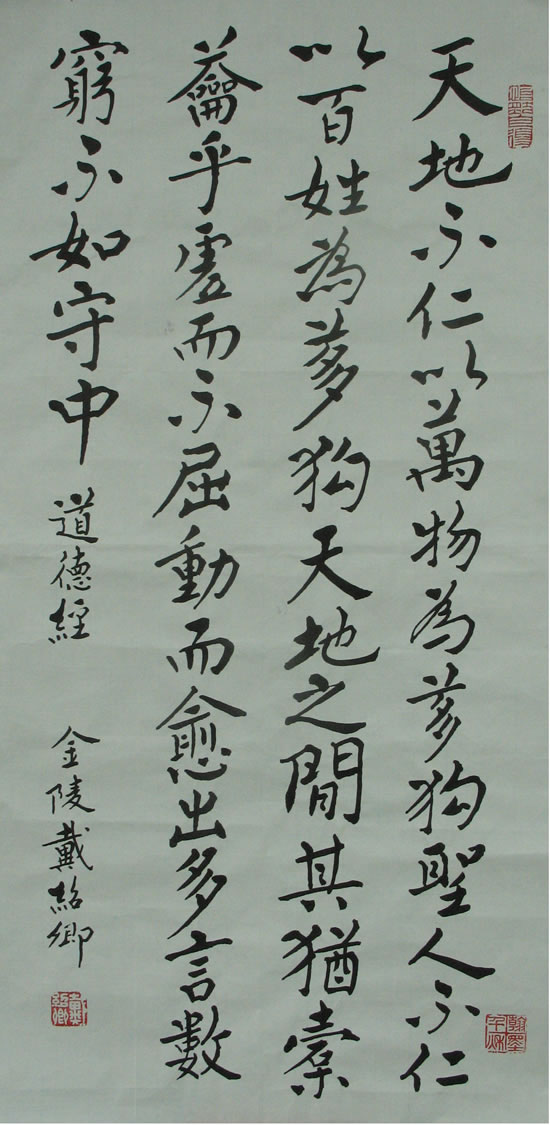 天地不仁以萬物為芻狗聖人不仁
以百姓為芻狗天地之間其猶橐
籥乎虛而不屈動而愈出多言數
窮不如守中
道德經
金陵戴紹卿